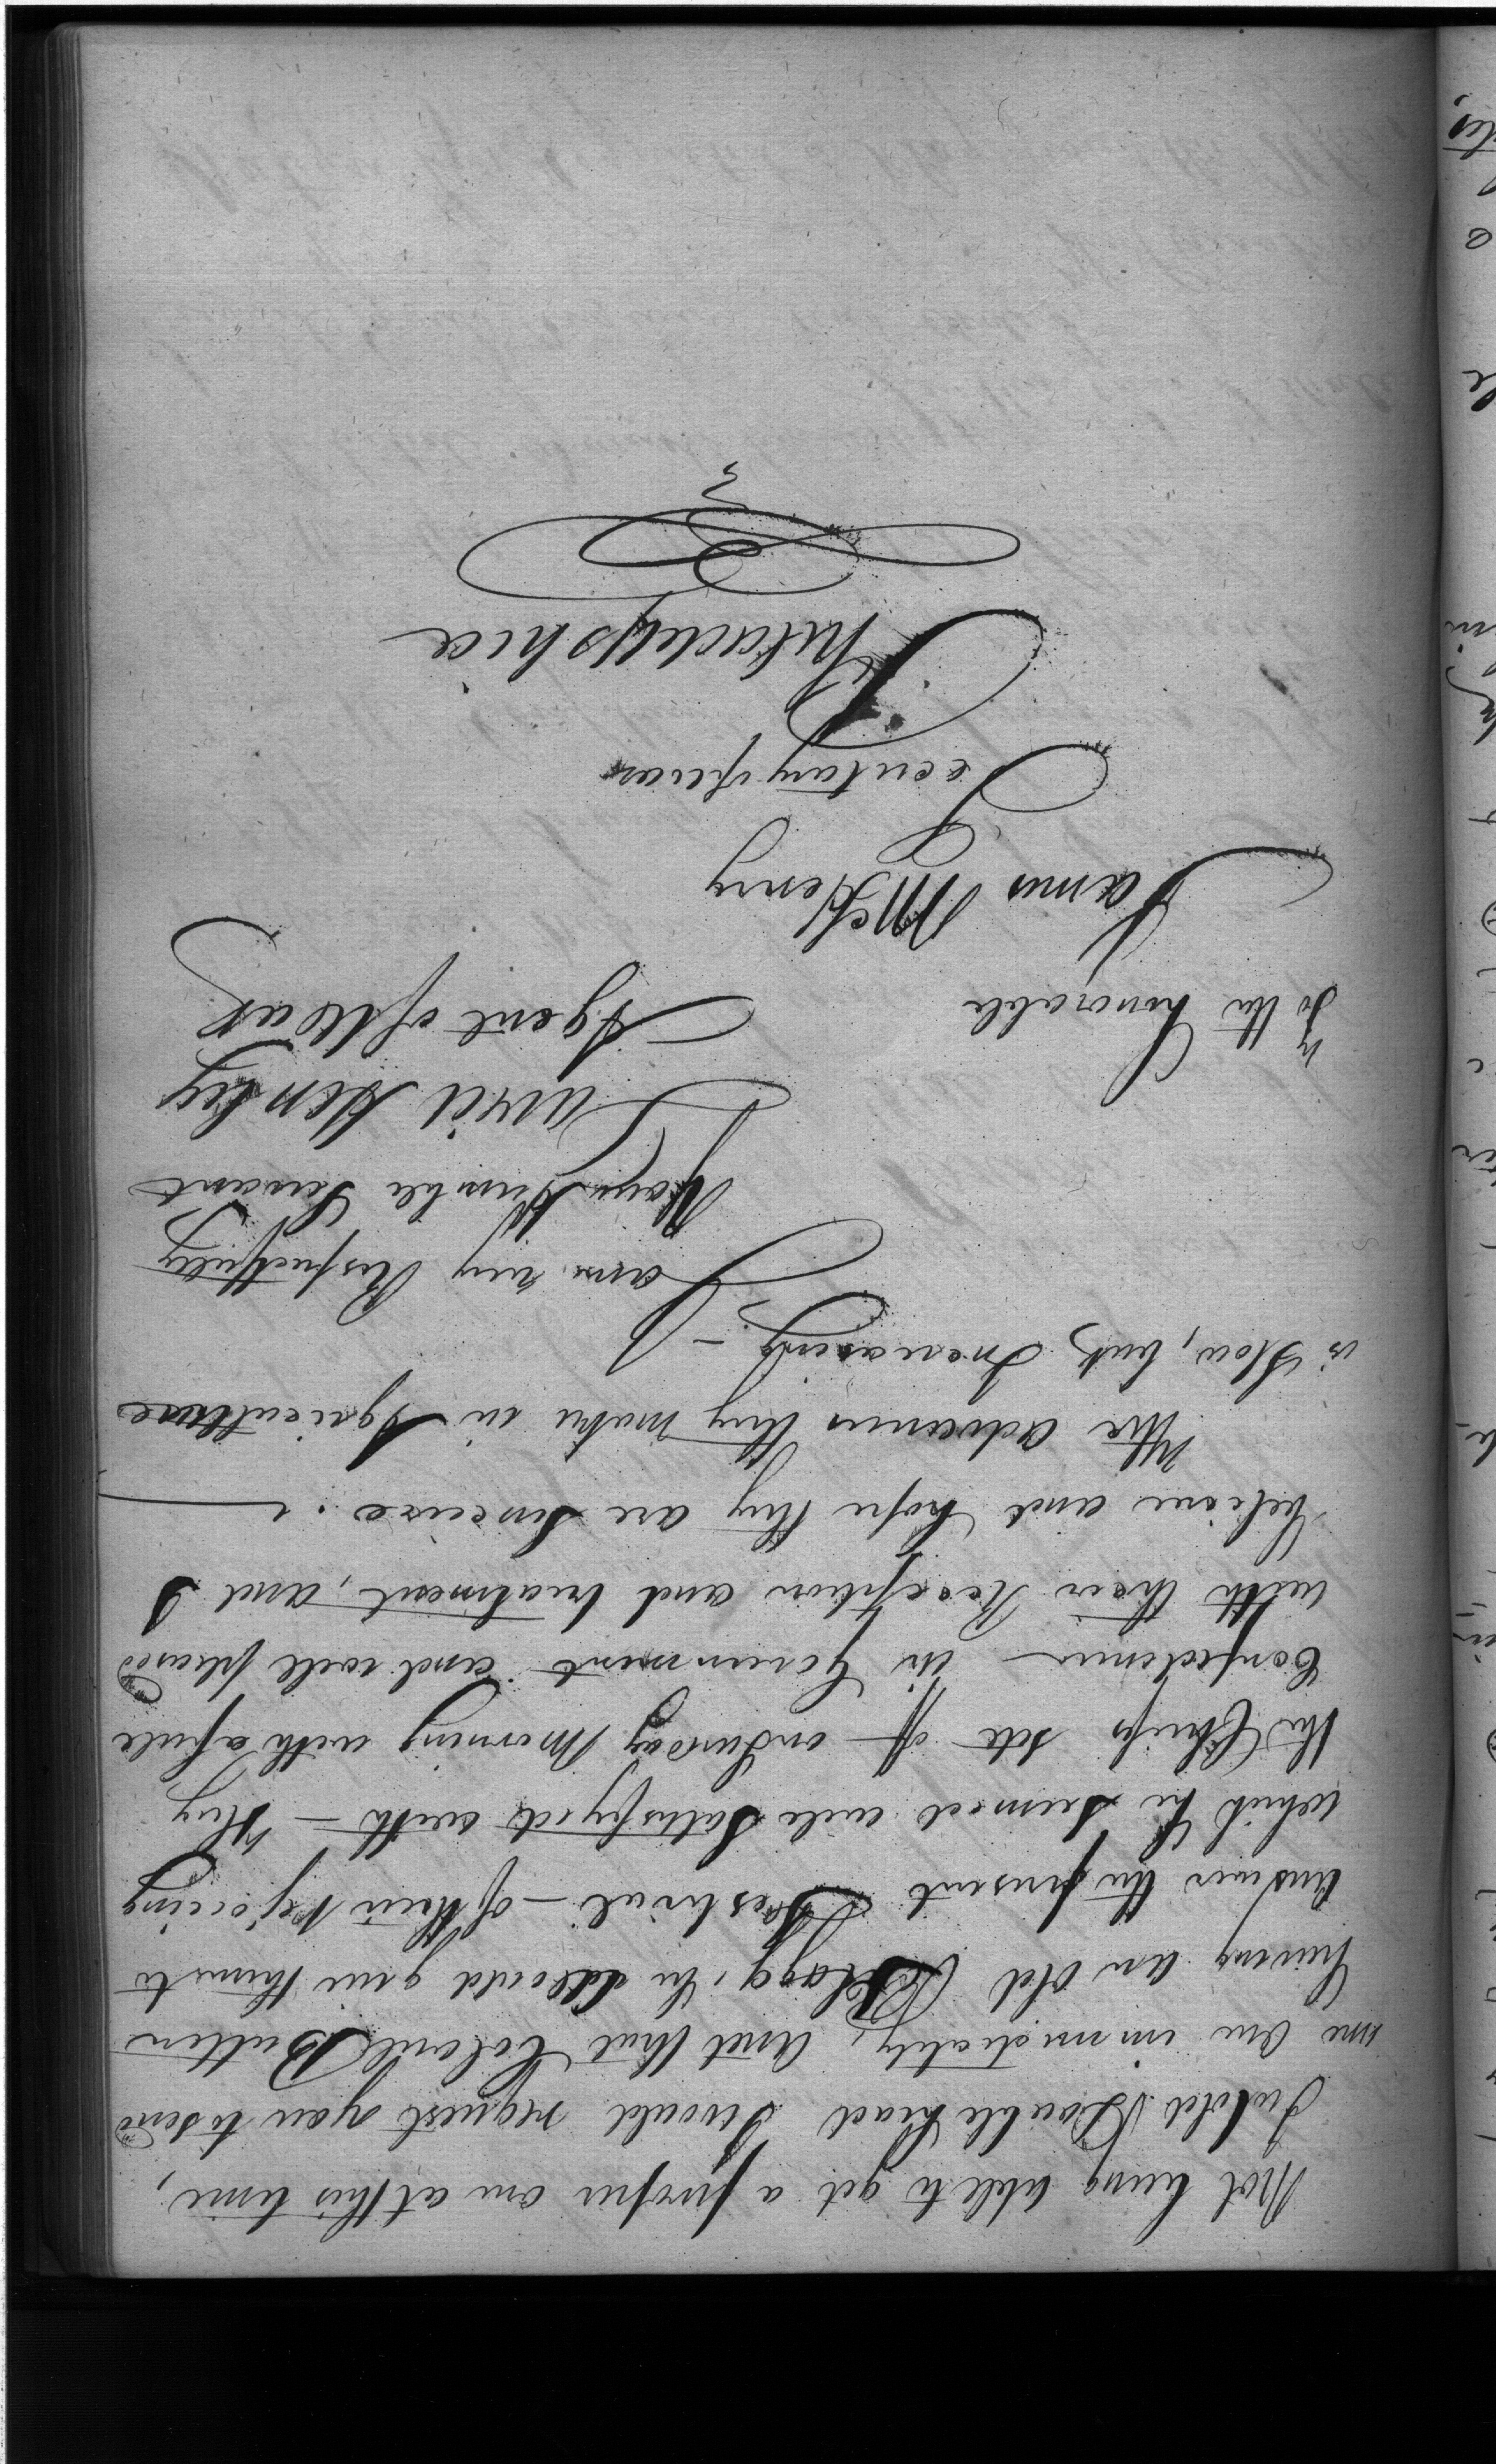 Not being able to get a proper one at this time,
I told Double head I would request you to send
me one immediately, and that Colonel Butler
having an old Flagg, he would give them to
answer the present Festival - of their rejoicing
which he seemed well satisfyed with - They
the Chiefs set off on Sunday Morning with a full
Confidence in Government and well pleased
with their Reception and treatment, and I
believe and hope they are Sincere. —
The advances they make in Agriculture
is slow, but, Increasing -
I am very Respectfully
Your Humble Servant
David Henley
Agent of War
To the honorable
James McHenry
Secretary of war
Philadelphia